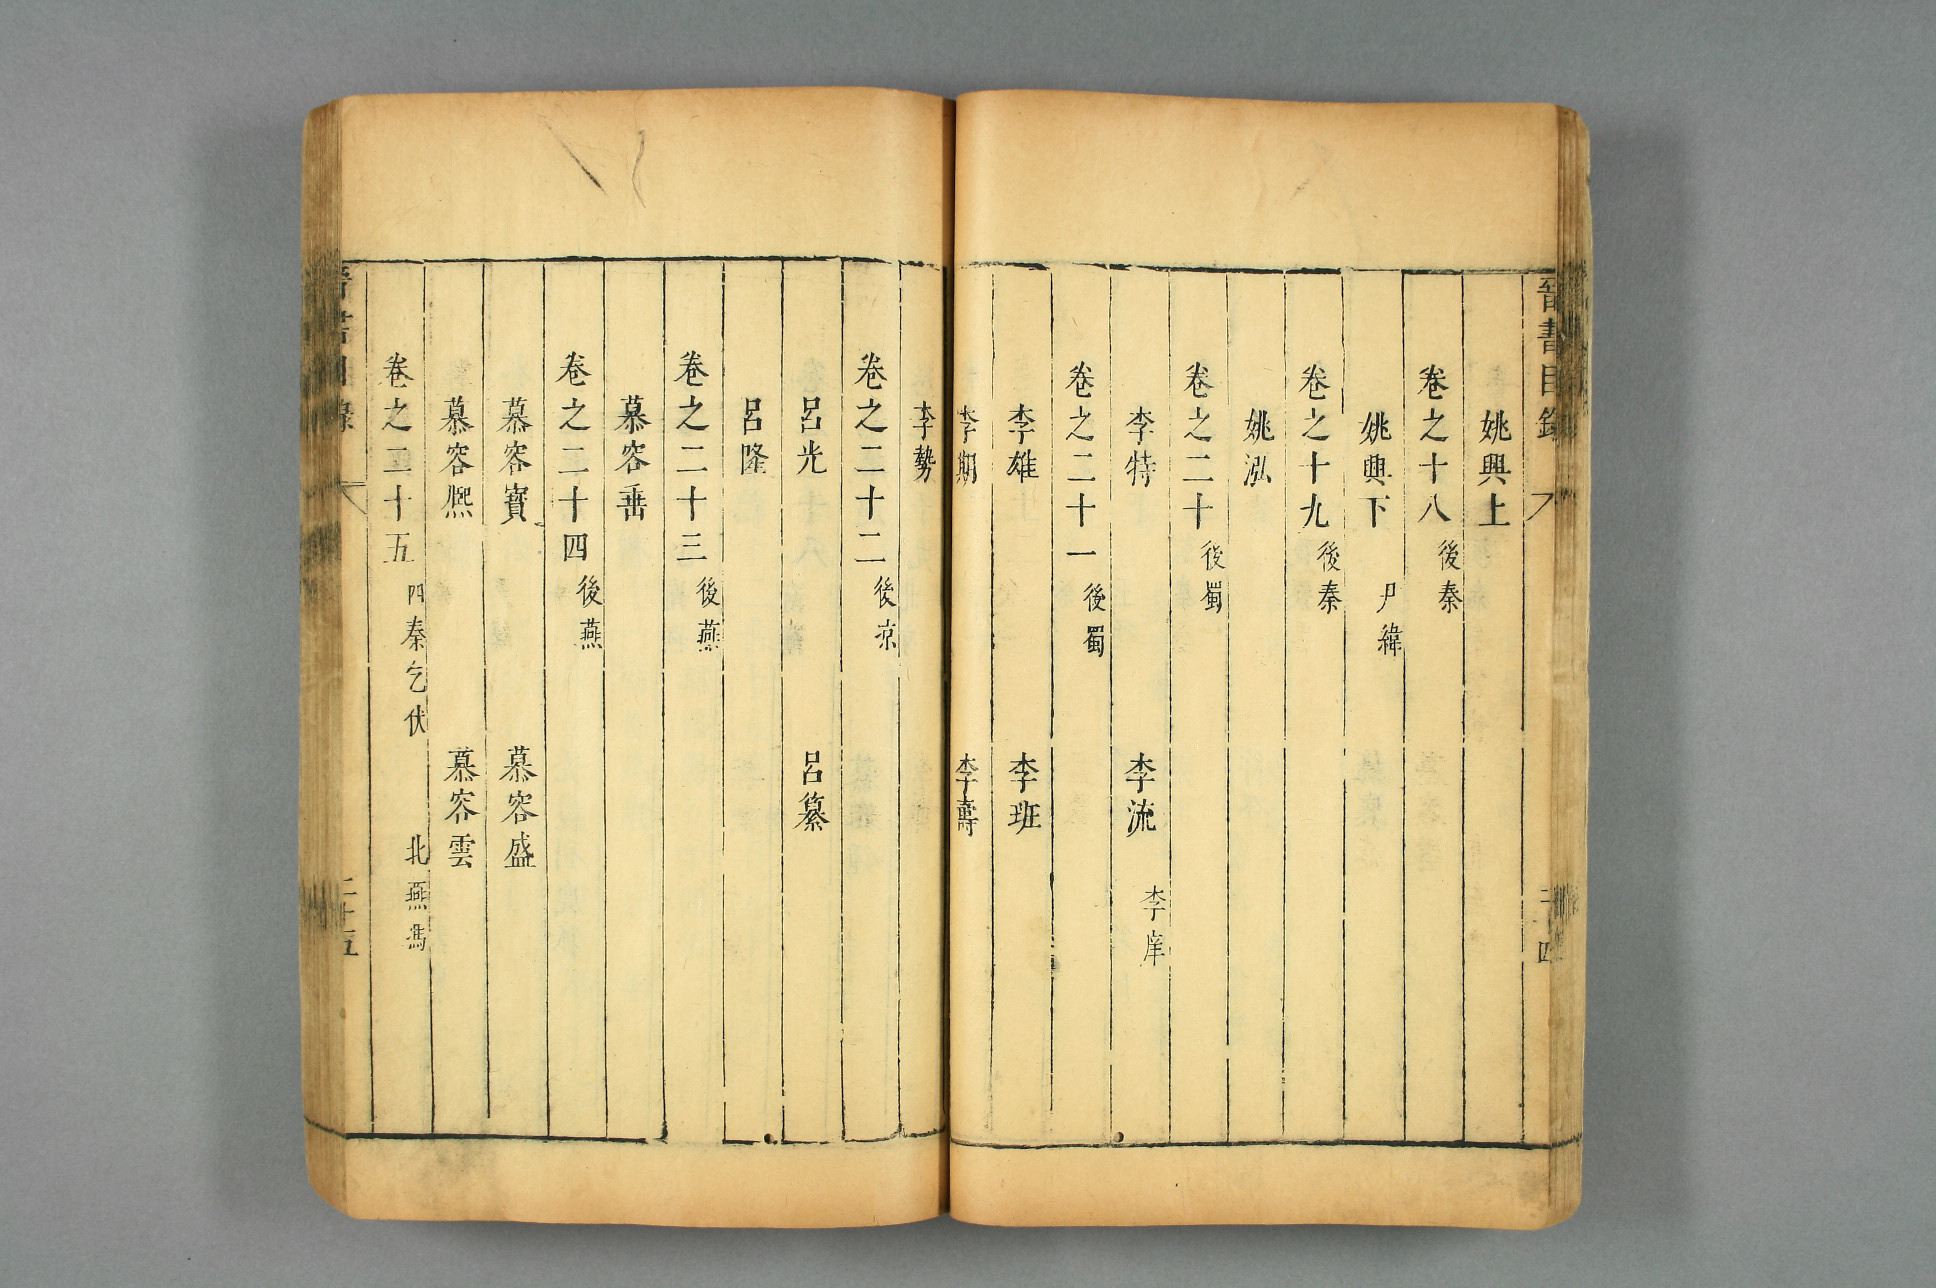 晉書目錄
二十四
姚興上
卷之十八 後秦
姚興下 尹緯
卷之十九 後秦
姚泓
卷之二十 後蜀
李特 李流 李庠
卷之二十一 後蜀
李雄 李班
李期 李壽
李勢
卷之二十二 後凉
呂光 呂纂
呂隆
卷之二十三 後燕
慕容垂
卷之二十四 後燕
慕容寶 慕容盛
慕容熙 慕容雲
卷之二十五 西秦乞伏 北燕馮
晉書目錄
二十五